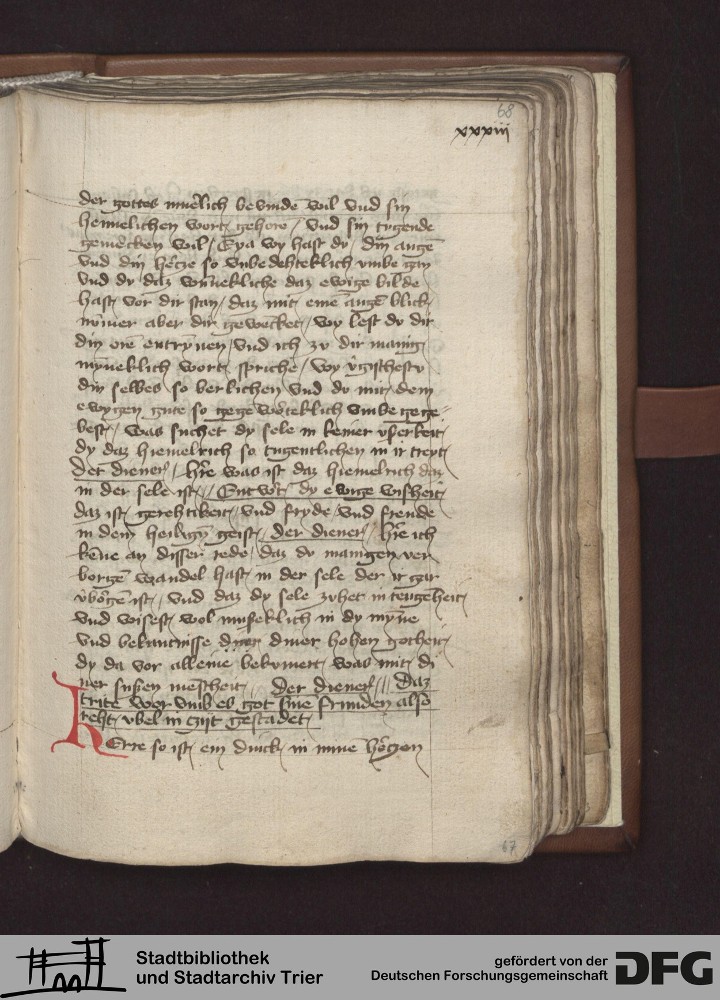 68
xxxiii
der gottes inuelich bevinde wil vnd sin
heimelichen wort gehore / vnd sin tugende
gemercken wil / Eya wy hast dv din auge
vnd din hercze so vnbedehteklich vmbe gan
vnd dv daz wunnekliche daz ewige bilde
hast vor dir stan / daz mit eine augē blick
nv̄mer aber dir gewencket / wy lest dv dir
din orē entrynen / vnd ich zv dir manig
myneklich wort spriche / wy
din selbes so berlichen vnd dv mit dem
ewygen gute so gegēwerteklich vmbe gege
best / was suchet dy sele in keiner vserkeit
dy daz hiemelrich so tugentlichen in ir treyt
der diener / hre was ist daz hiemelrich daz
in der sele ist / Entwort dy ewige wisheit
daz ist gerehtikeit / vnd fryde / vnd freude
in dem heiligen geist / der diener / hre ich
kēne an disser rede / daz dv manigen ver
borgē wandel hast in der sele der ir gar
vborgē ist / vnd daz dy sele zvhet in teugēheit
vnd wisest wol museklich in dy mȳne
vnd bekantnisse diner hohen gotheit
dy da vor alleine bekvmert was mit di
ner sussen mēscheit / der diener / Daz
trite wor vmb es got sine frunden also
reht vbel in czijt gestadet
Herre so ist ein dinck in mine hērczen
67
Stadtbibliothek
und Stadtarchiv Trier
gefördert von der
Deutschen Forschungsgemeinschaft
DFG